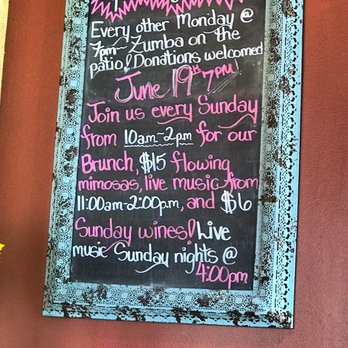 Every other Monday @
7pm Zumba on the
patio! Donations welcomed!
June 19th 7pm!
Join us every Sunday
from 10am-2pm for our
Brunch, $15 flowing
mimosas, live music from
11:00am-2:00pm, and $6
Sunday wines! Live
music Sunday nights @
4:00pm